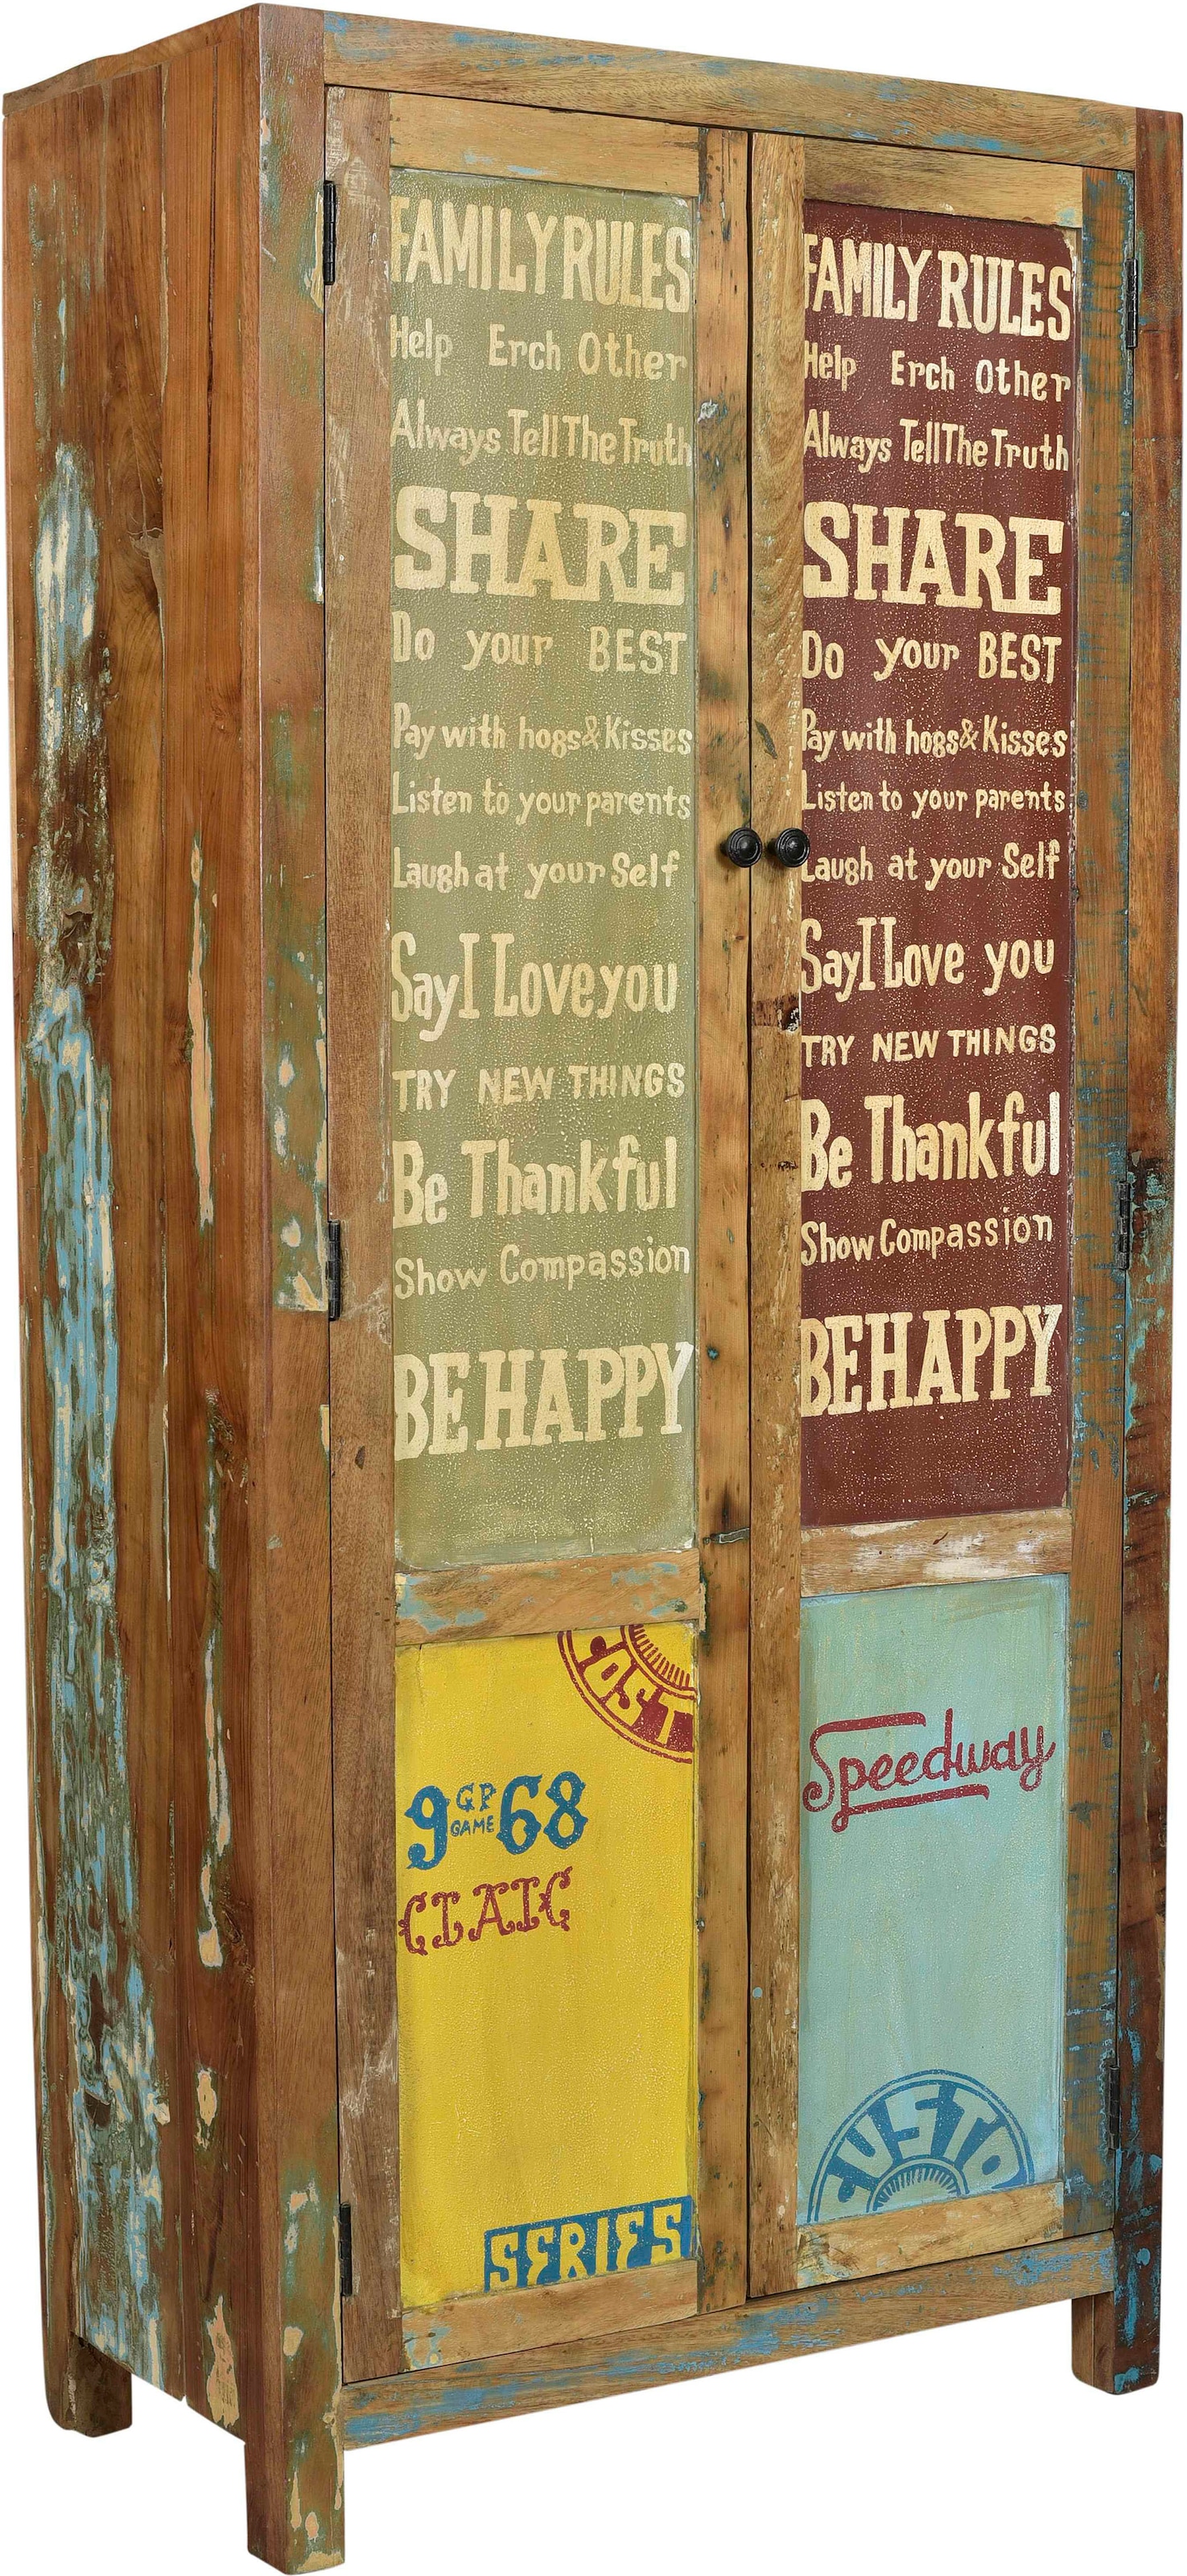 FAMILY RULES
Help Erch Other
Always Tell The Truth
SHARE
Do your BEST
Pay with hogs & Kisses
Listen to your parents
Laugh at your Self
Say I Love you
TRY NEW THINGS
Be Thankful
Show Compassion
BE HAPPY
9 GP GAME 68
CLAIC
SERIES
FAMILY RULES
Help Erch Other
Always Tell The Truth
SHARE
Do your BEST
Pay with hogs & Kisses
Listen to your parents
Laugh at your Self
Say I Love you
TRY NEW THINGS
Be Thankful
Show Compassion
BE HAPPY
Speedway
CUSTO